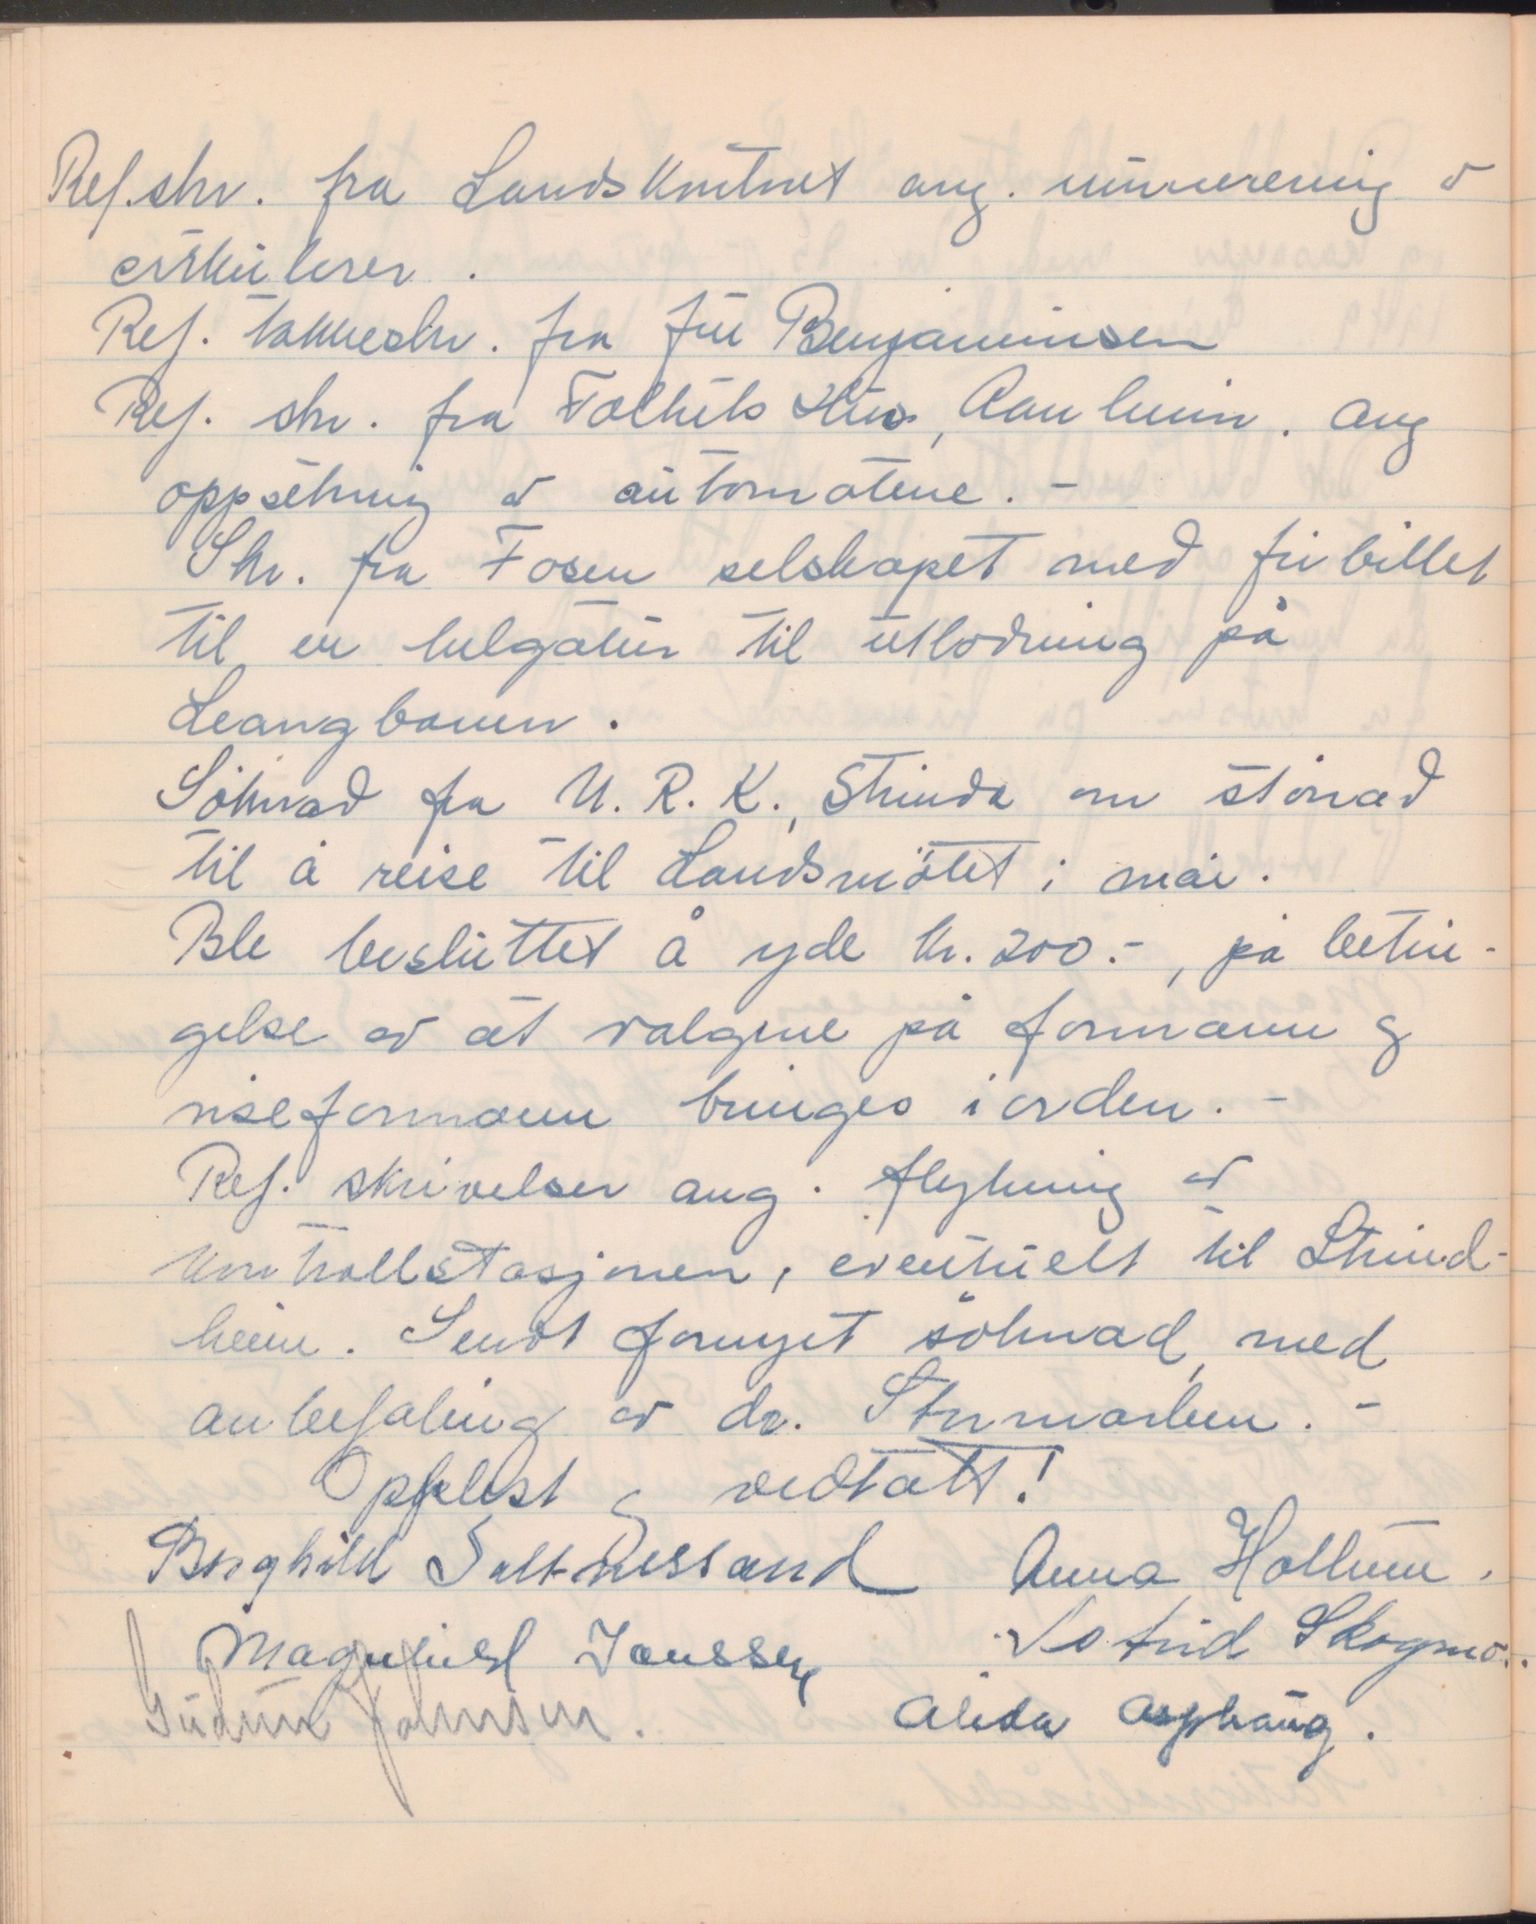 Ref. skr. fra Landskontoret ang. nummerering av
cirkulerer.
Ref. takkeskr. fra fru Benjaminsen
Ref. skr. fra Folkets Hus, Ranheim. ang
oppsetning av automatene. -
Skr. fra Fosen selskapet med fribillet
til en helgatur til utlodning på
Leangbanen.
Söknad fra U. R. K., Strinda om stönad
til å reise til Landsmötet i mai.
Ble besluttet å yde kr. 200.-, på betin-
gelse av at valgene på formann og
viseformann bringes i orden. -
Ref. skrivelser ang. flytning av
kontrollstasjonen, eventuelt til Strind-
heim. Sendt fornyet söknad, med
anbefaling av dr. -
Opplest og vedtatt!
Borghild Saltnessand Anna Hollum.
Magnhild Janssen Astrid Skogmo.
Gudrun Johnsen. Alida Asphaug.